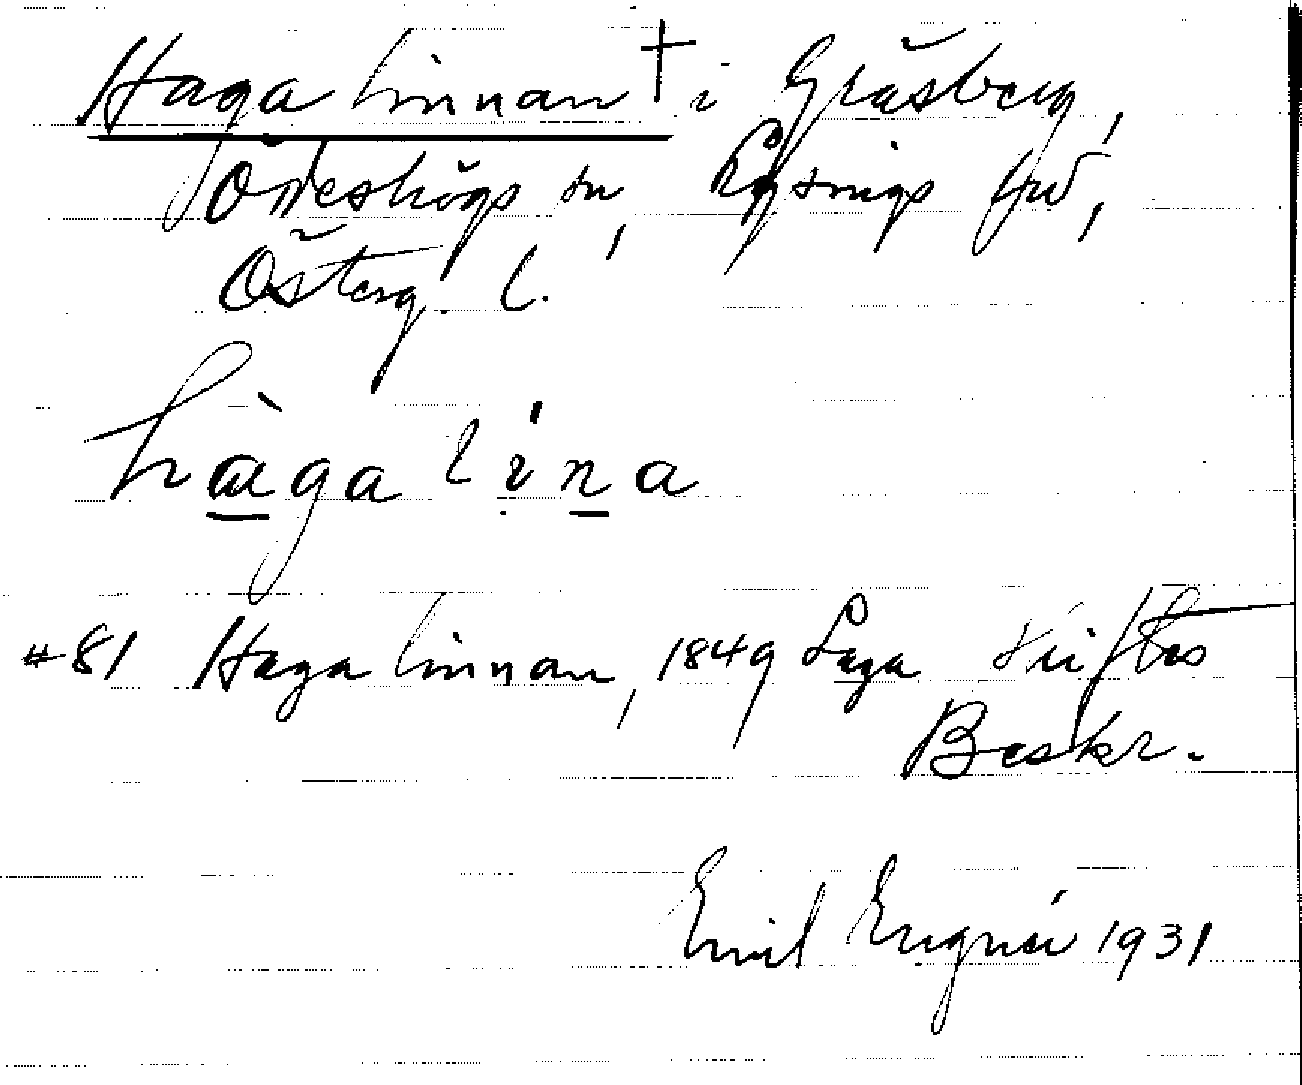 Haga linnan † i Gräsberg,
Ödeshögs sn, Lysings hd,
Österg. l.
hàga lína
#81 Haga linnan, 1849 Laga skiftes
Beskr.
Emil Engnér 1931